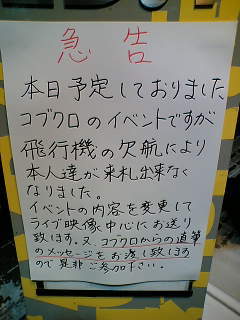 急告
本日予定しておりました
コブクロのイベントですが
飛行機の欠航により
本人達が来札出来なく
なりました。
イベントの内容を変更して
ライブ映像中心にお送り
致します。又、コブクロからの直筆
のメッセージをお渡し致します
ので是非ご参加下さい。